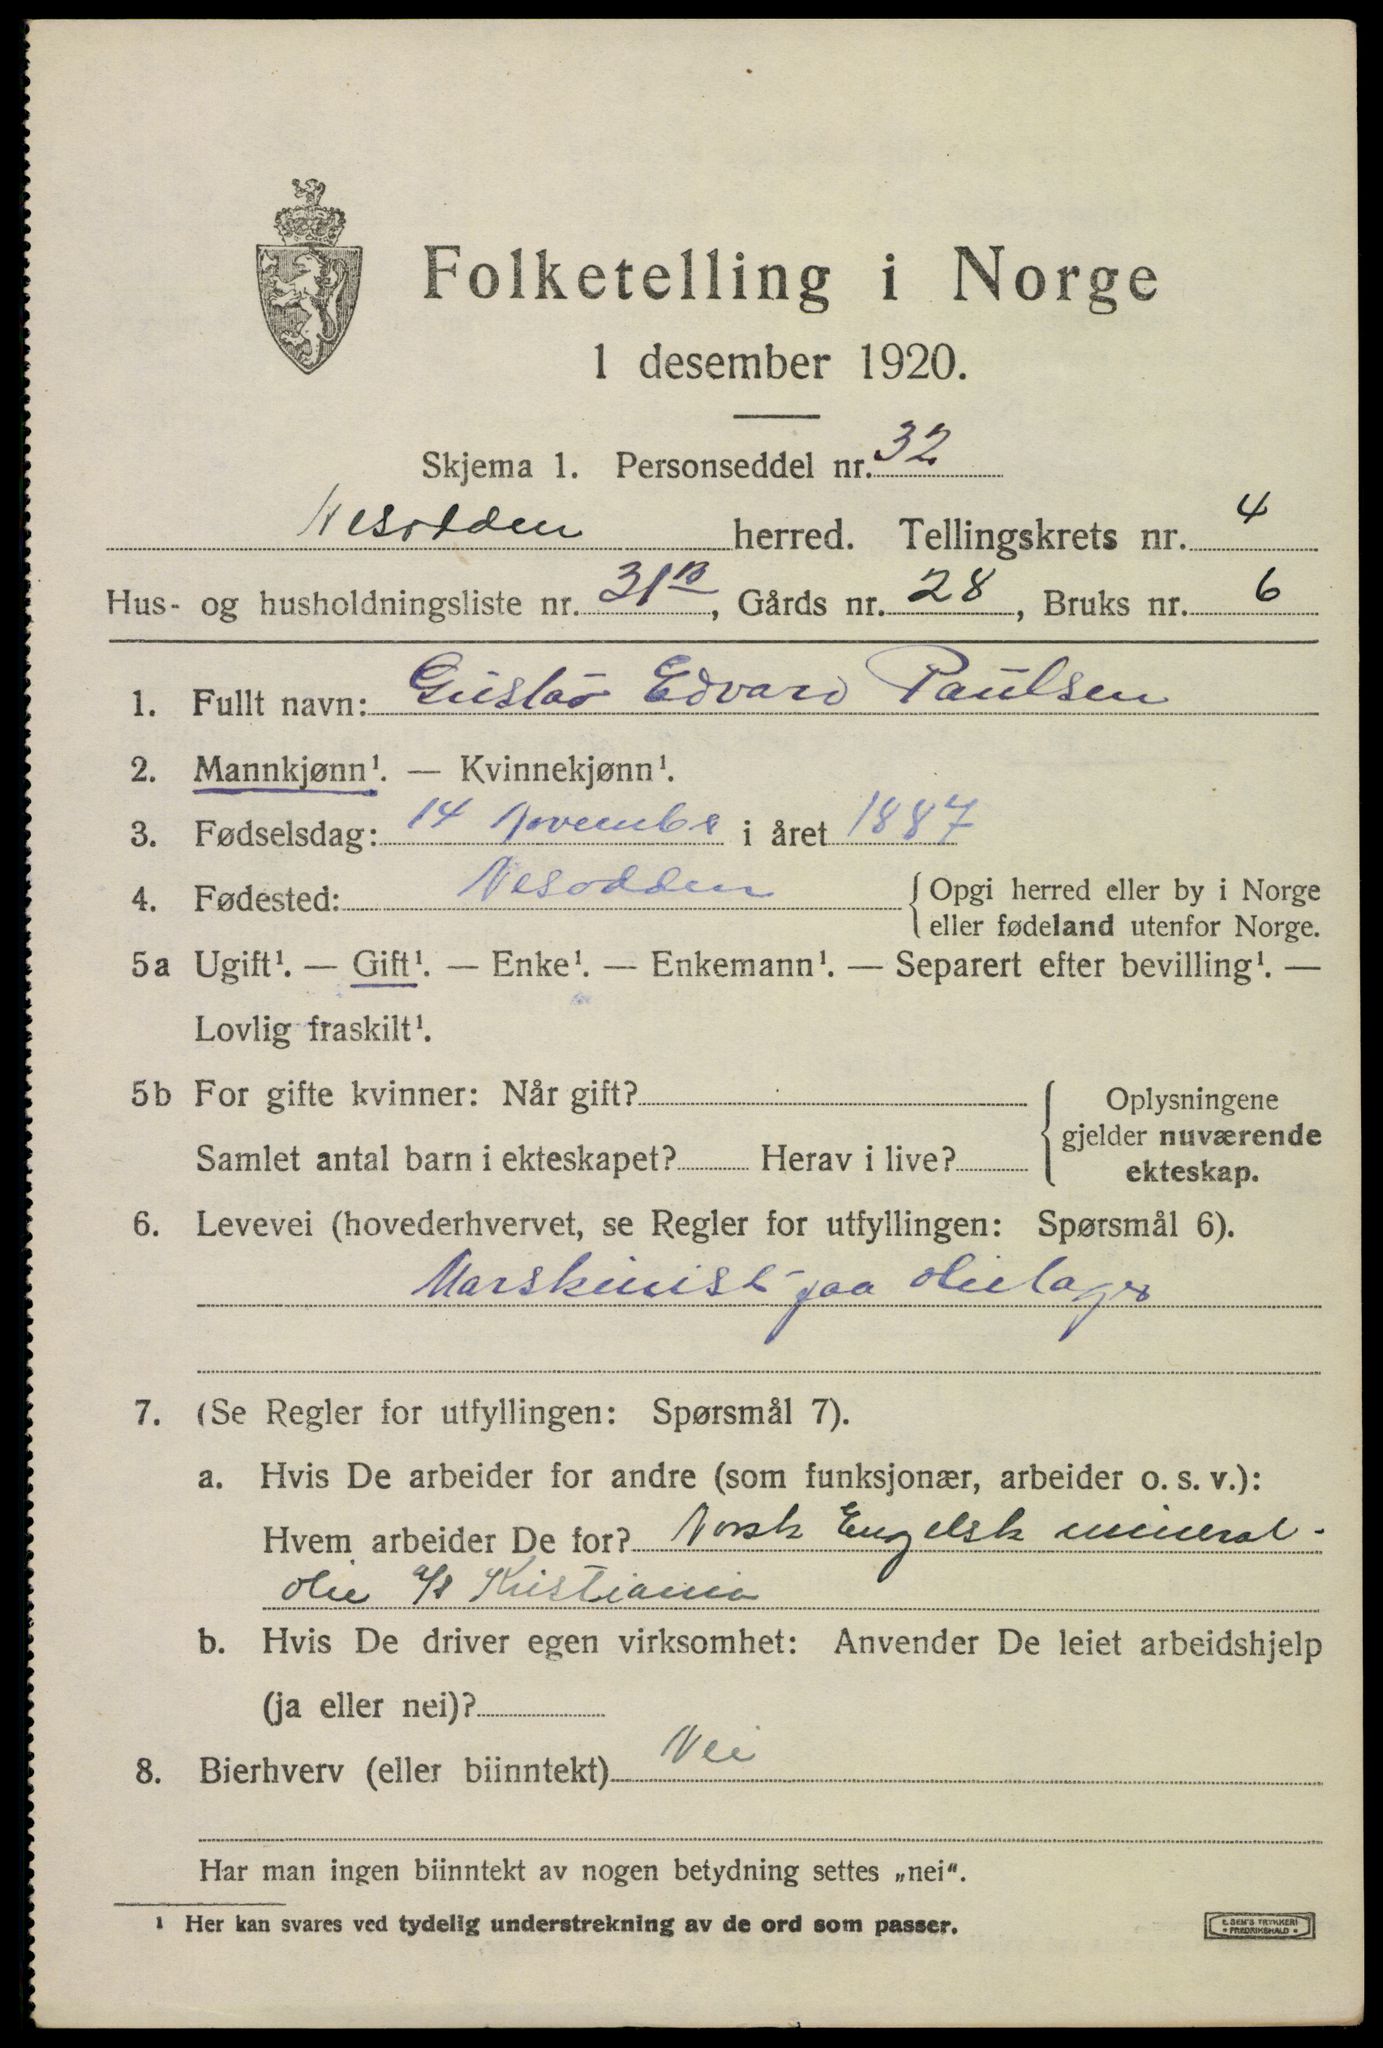 Folketelling i Norge
1 desember 1920.
Skjema 1. Personseddel nr. 32
Nesodden herred. Tellingskrets nr. 4
Hus- og husholdningsliste nr. 31B, Gårds nr. 28, Bruks nr. 6
1. Fullt navn: Gustav Edvard Paulsen
2. Mannkjønn¹. — Kvinnekjønn¹.
3. Fødselsdag: 14 November i året 1887
4. Fødested: Nesodden { Opgi herred eller by i Norge
eller fødeland utenfor Norge.
5a Ugift¹. — Gift¹. — Enke¹. — Enkemann¹. — Separert efter bevilling¹. —
Lovlig fraskilt¹.
5b For gifte kvinner: Når gift? { Oplysningene
gjelder nuværende
Samlet antal barn i ekteskapet? Herav i live? ekteskap.
6. Levevei (hovederhvervet, se Regler for utfyllingen: Spørsmål 6).
Marskinist paa olielager
7. (Se Regler for utfyllingen: Spørsmål 7).
a. Hvis De arbeider for andre (som funksjonær, arbeider o. s. v.):
Hvem arbeider De for? Norsk Engelsk mineral-
olie a/s Kristiania
b. Hvis De driver egen virksomhet: Anvender De leiet arbeidshjelp
(ja eller nei)?
8. Bierhverv (eller biinntekt) Nei
Har man ingen biinntekt av nogen betydning settes „nei".
¹ Her kan svares ved tydelig understrekning av de ord som passer.
E. SEM'S TRYKKERI
• FREDRIKSHALD •